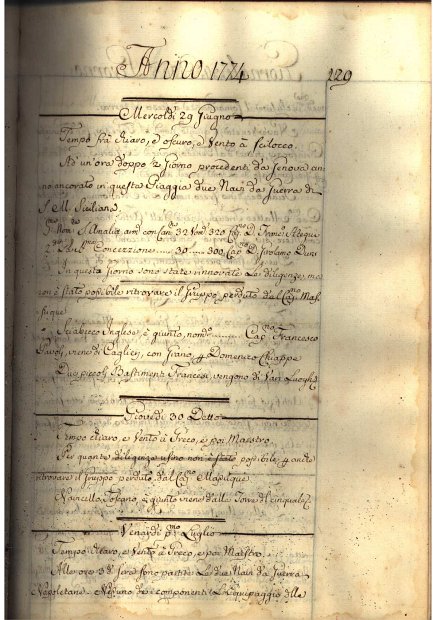 Anno 1774
129
Mercoldì 29 Giugno
Tempo frà chiaro, e oscuro, e Vento à Scilocco.
Ad un'ora doppo giorno procedenti da Genova an
no ancorato in questa Piaggia due Navi da Guerra di
S. M. Siciliana
S. Amalia arm. con 32 320 D.
Concezzione 30 300 D.
In questa giorno sono state rinnovate le diligenze, ma
non è stato possibile ritrovare il Gruppo perduto dal Mas
sique
Sciabecco Inglese è giunto, nom. Cap. Francesco
viene di Caglieri, con Grano, Domenico Chiappe
Due piccoli Bastimenti Francesi, vengono di Vari Luoghi
Giovedì 30 Detto
Tempo chiaro, e Vento à Greco, e poi Maestro.
Per quante diligenze usino non è stato possibile
ritrovare il Gruppo perduto dal Massique
Navicello Toscano, è giunto viene dalla Torre
Venardì Luglio
Tempo chiaro, e Vento à Greco, e poi Maestro.
Alle ore 3 di sera sono partite le due Navi da Guerra
Napoletane. Nessuno de componenti l'Equipaggio delle